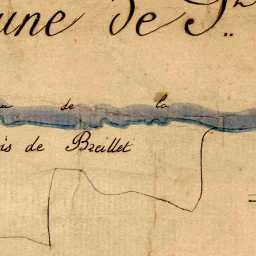 une de S
de la
is de Breillet